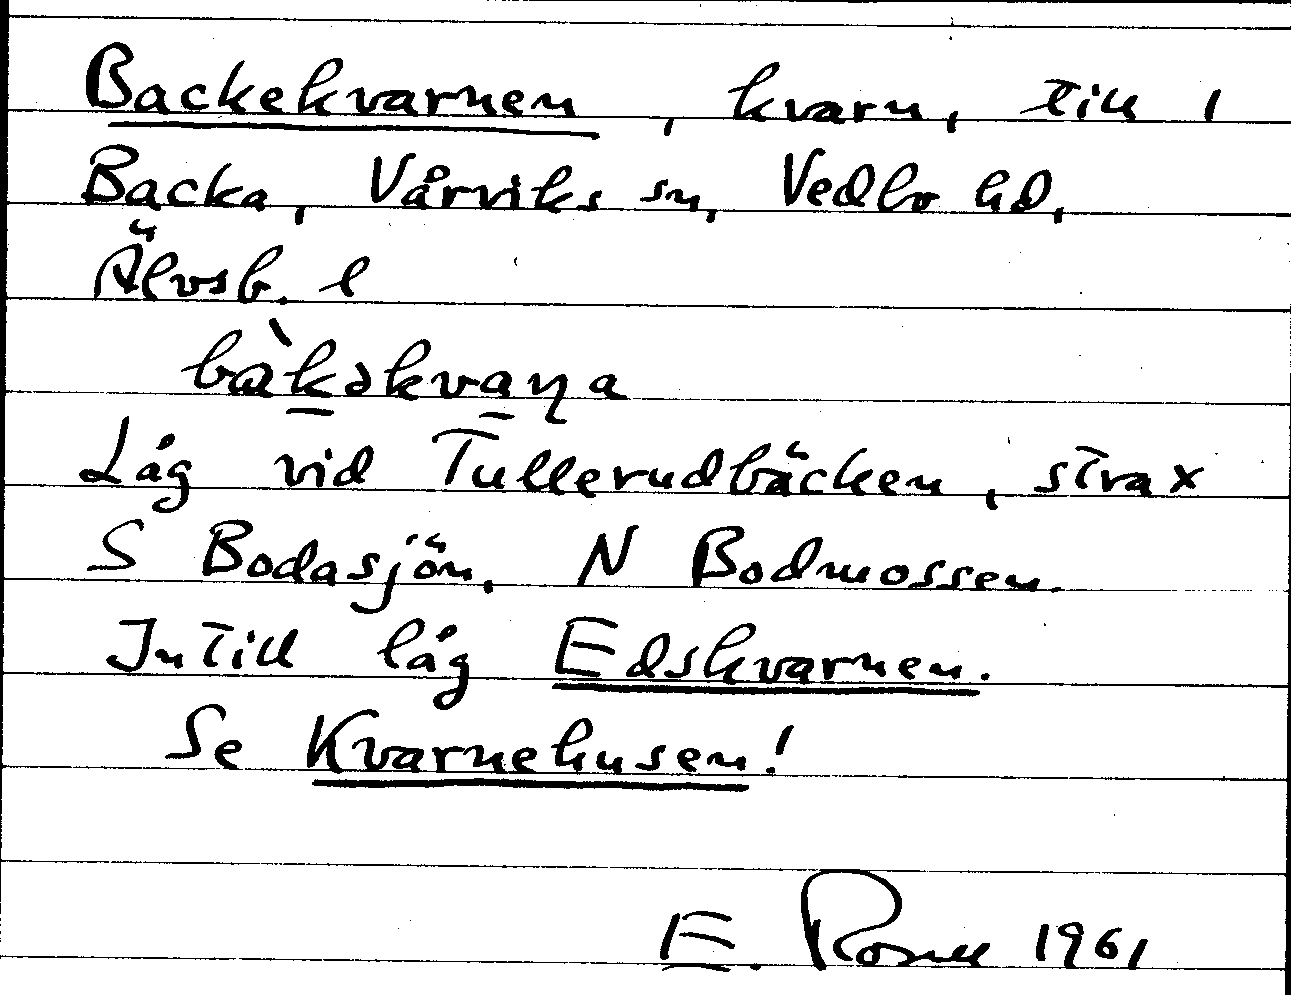 Backekvarnen, kvarn, till 1
Backa, Vårviks sn, Vedbo hd,
Älvsb. l
bàkəkvaɳa
Låg vid Tullerudbäcken, strax
S Bodasjön, N Bodmossen.
Intill låg Edskvarnen.
Se Kvarnehusen!
E. Rosell 1961